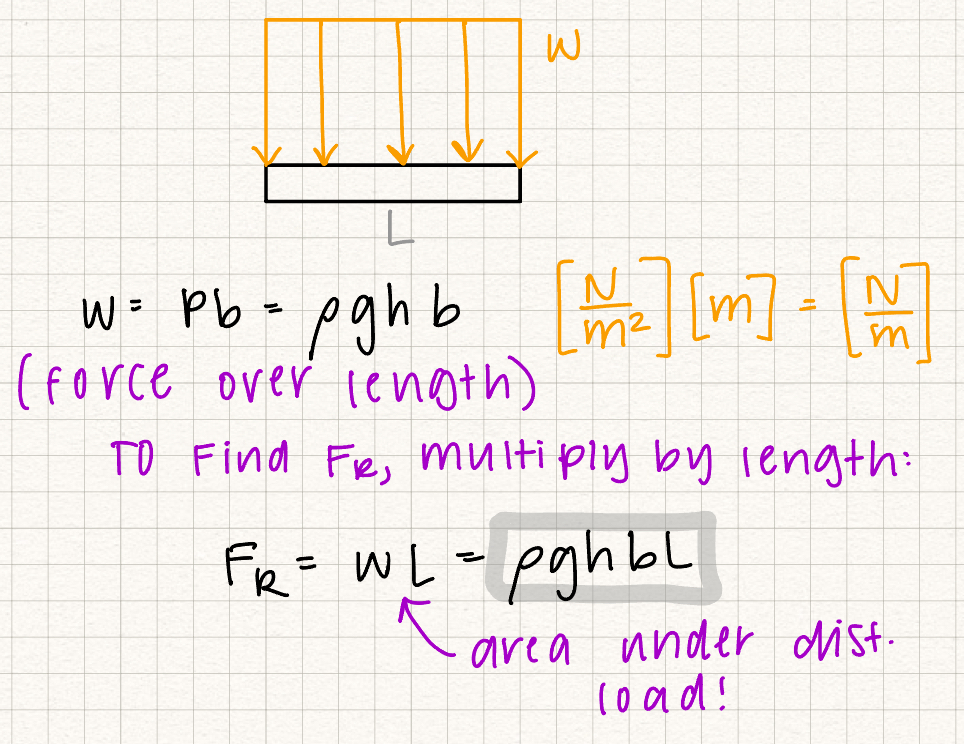 w
L
w = Pb = ρghb [N/m²][m] = [N/m]
(force over length)
To Find F_R, multiply by length:
F_R = wL = ρghbL
area under dist.
load!